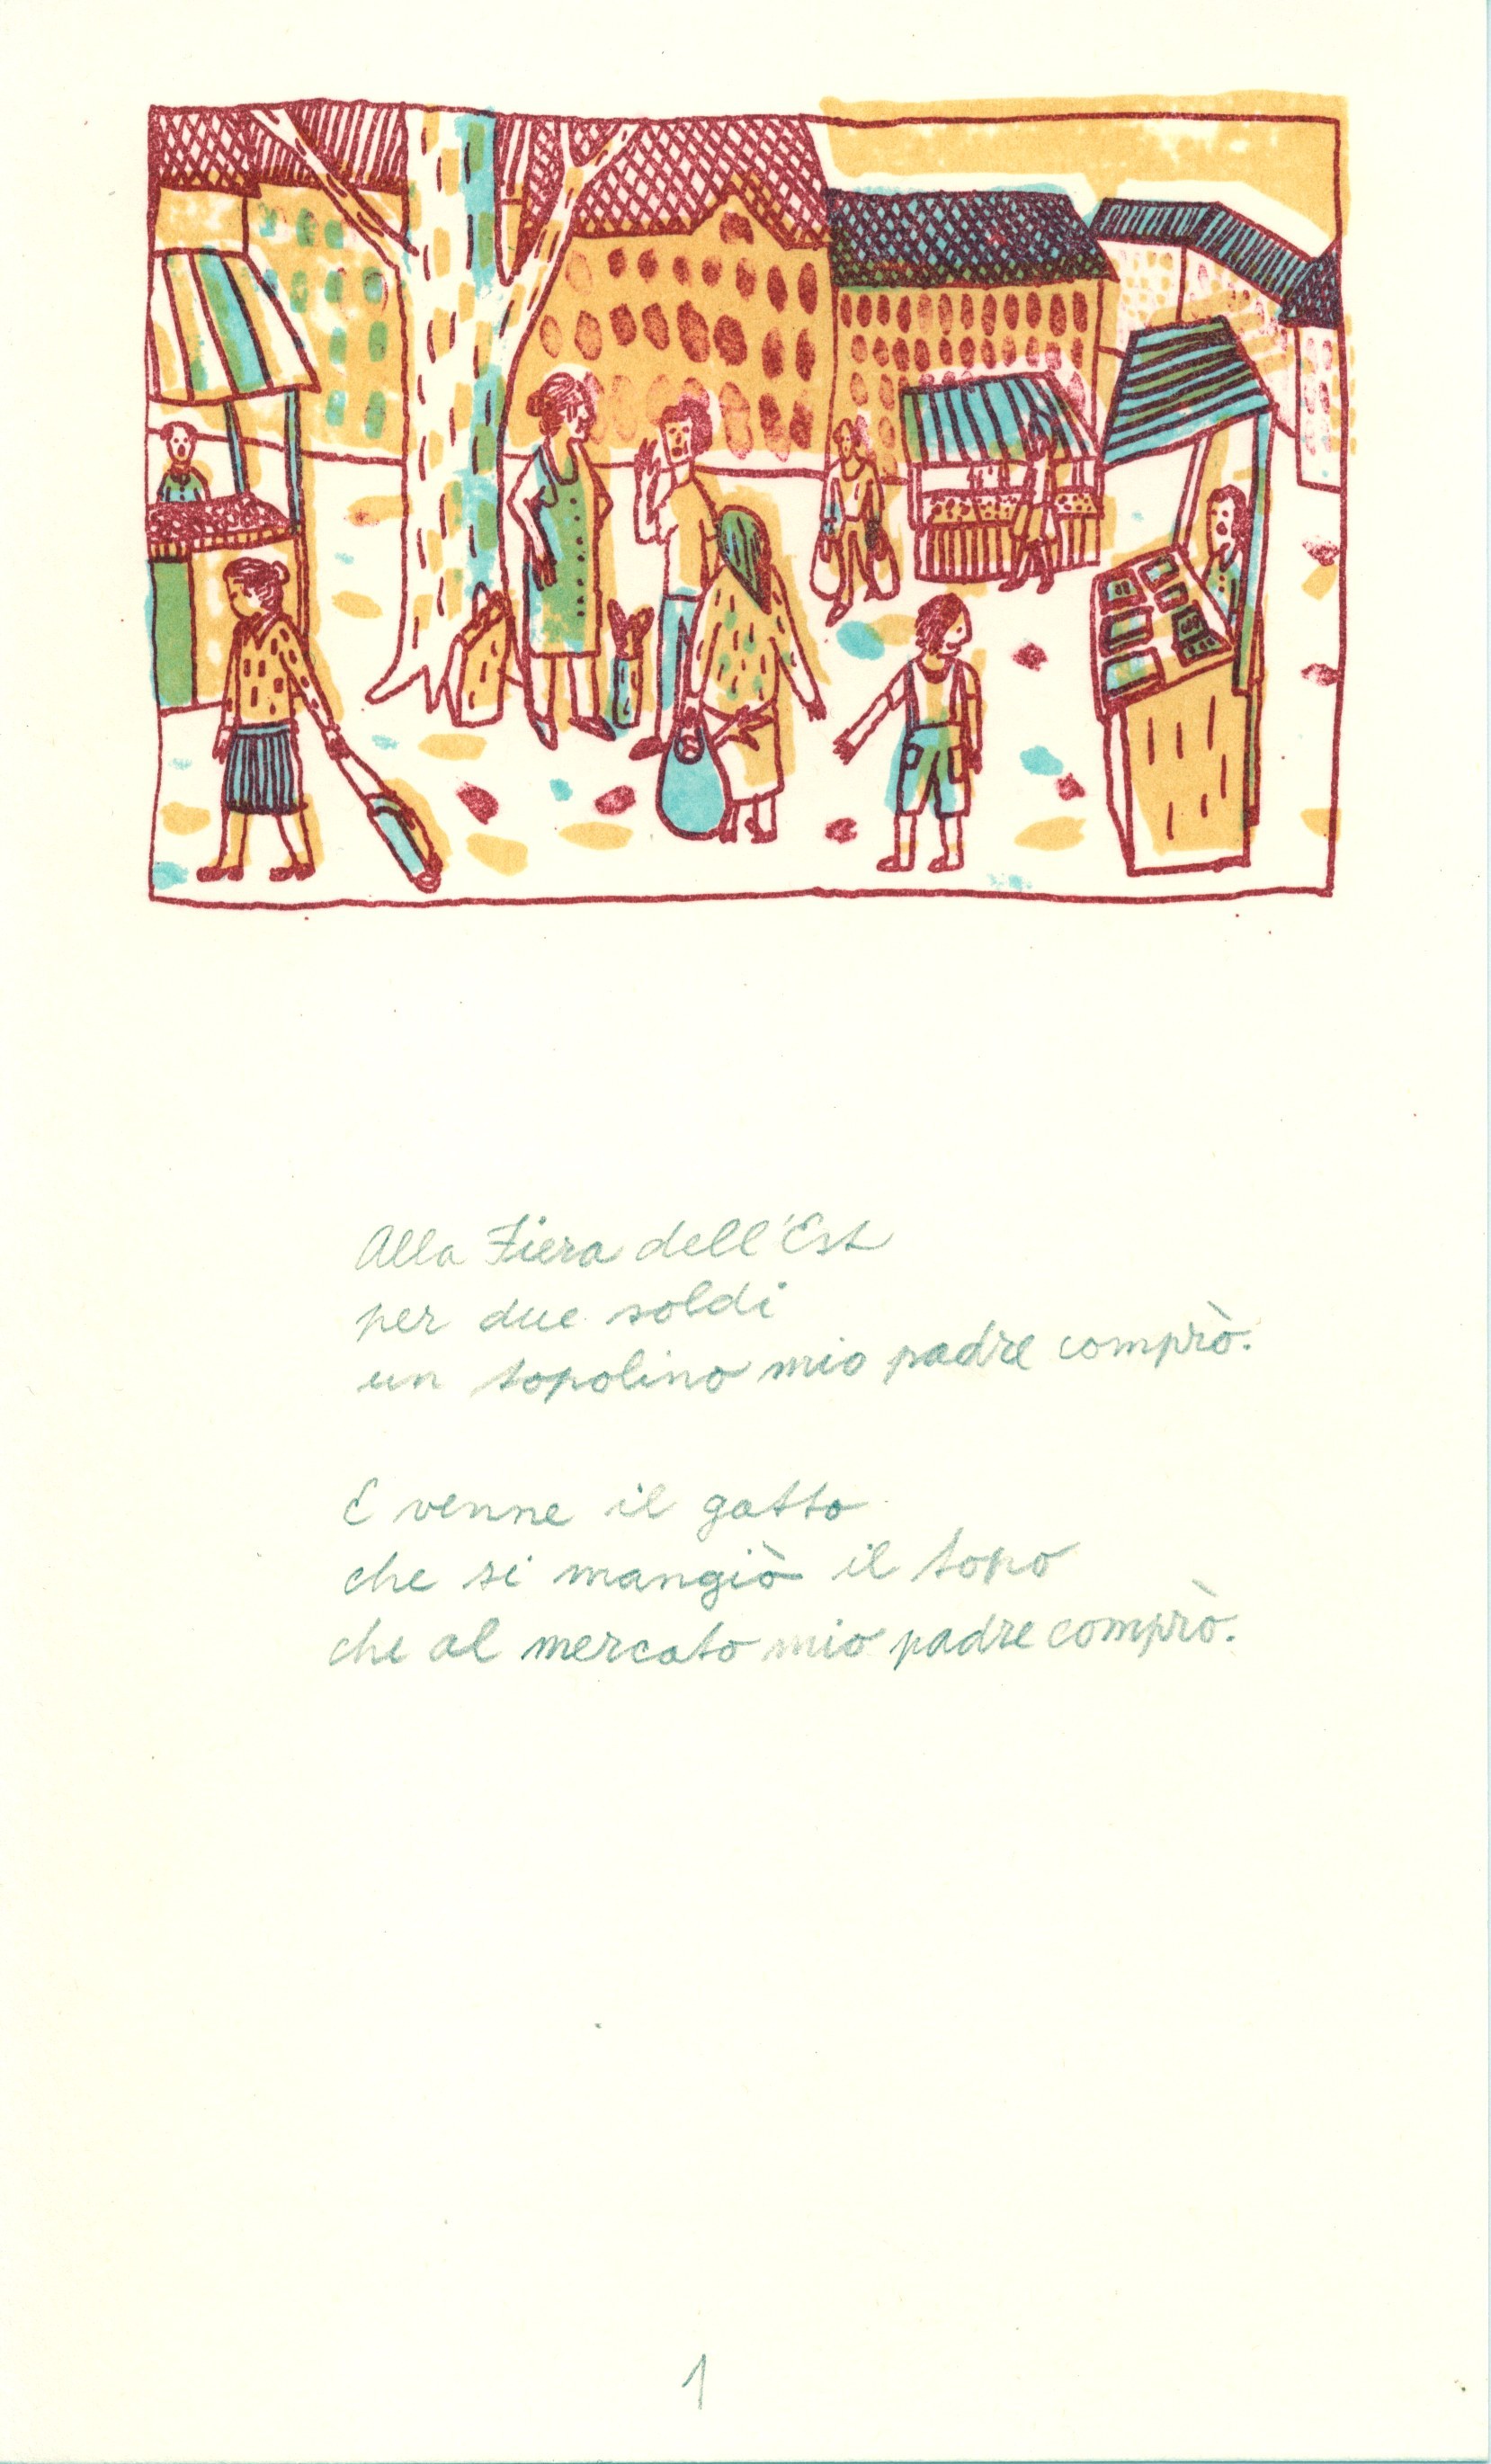 Alla Fiera dell'Est
per due soldi
un topolino mio padre comprò.
E venne il gatto
che si mangiò il topo
che al mercato mio padre comprò.
1